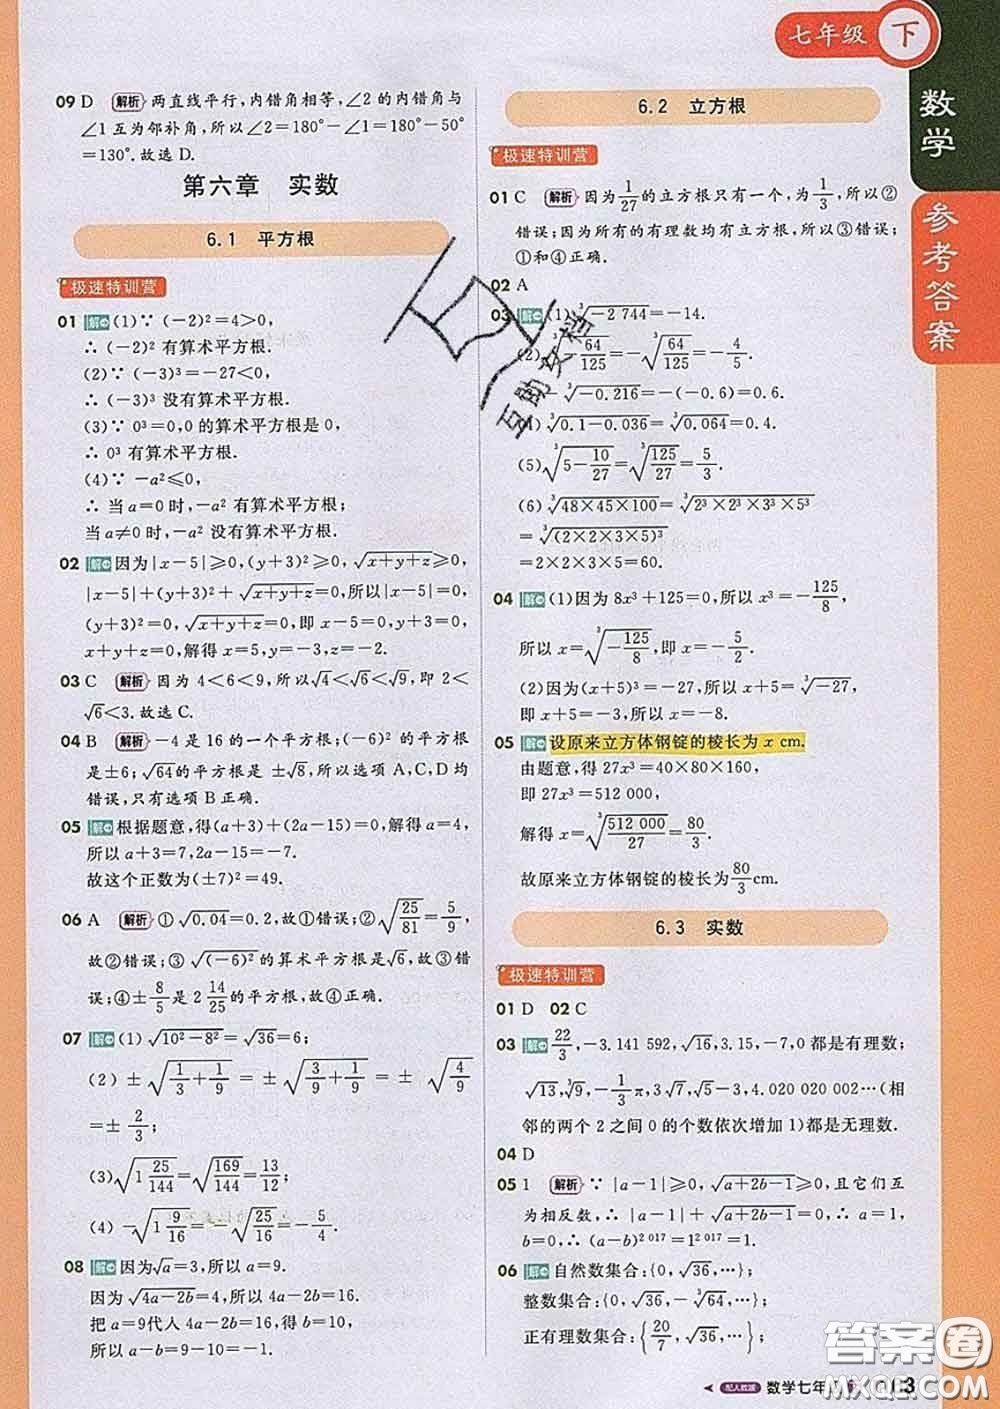 七年级 下
数学
参考答案
09 D 解析 两直线平行,内错角相等,∠2的内错角与
∠1互为邻补角,所以∠2=180°-∠1=180°-50°
=130°.故选D.
第六章 实数
6.1 平方根
极速特训营
01 解 (1)∵ (-2)²=4>0,
∴ (-2)² 有算术平方根.
(2)∵ (-3)³=-27<0,
∴ (-3)³ 没有算术平方根.
(3)∵ 0³=0,0的算术平方根是0,
∴ 0³ 有算术平方根.
(4)∵ -a²≤0,
∴ 当a=0时,-a² 有算术平方根;
当a≠0时,-a² 没有算术平方根.
02 解 因为|x-5|≥0,(y+3)²≥0,√(x+y+z)≥0,
|x-5|+(y+3)²+√(x+y+z)=0,所以|x-5|=0,
(y+3)²=0,√(x+y+z)=0,即x-5=0,y+3=0,
x+y+z=0,解得x=5,y=-3,z=-2.
03 C 解析 因为4<6<9,所以√4<√6<√9,即2<
√6<3.故选C.
04 B 解析 -4是16的一个平方根;(-6)²的平方根
是±6;√64的平方根是±√8,所以选项A,C,D均
错误,只有选项B正确.
05 解 根据题意,得(a+3)+(2a-15)=0,解得a=4,
所以a+3=7,2a-15=-7.
故这个正数为(±7)²=49.
06 A 解析 ①√0.04=0.2,故①错误;②√(25/81)=5/9,
故②错误;③√(-6)²的算术平方根是√6,故③错
误;④±8/5是2 14/25的平方根,故④正确.
07 解 (1)√(10²-8²)=√36=6;
(2)±√(1/3+1/9)=±√(3/9+1/9)=±√(4/9)
=±2/3;
(3)√(1 25/144)=√(169/144)=13/12;
(4)-√(1 9/16)=-√(25/16)=-5/4.
08 解 因为√a=3,所以a=9.
因为√(4a-2b)=4,所以4a-2b=16.
把a=9代人4a-2b=16,得b=10,
所以a-b=9-10=-1.
6.2 立方根
极速特训营
01 C 解析 因为1/27的立方根只有一个,为1/3,所以②
错误;因为所有的有理数均有立方根,所以③错误;
①和④正确.
02 A
03 解 (1)³√(-2 744)=-14.
(2)³√(-64/125)=-³√(64/125)=-4/5.
-³√(-0.216)=-(-0.6)=0.6.
(4)³√(0.1-0.036)=³√0.064=0.4.
(5)³√(5-10/27)=³√(125/27)=5/3.
(6)³√(48×45×100)=³√(2³×2³×3³×5³)
=³√((2×2×3×5)³)
=2×2×3×5=60.
04 解 (1)因为8x³+125=0,所以x³=-125/8,
所以x=³√(-125/8),即x=-5/2.
(2)因为(x+5)³=-27,所以x+5=³√(-27),
即x+5=-3,所以x=-8.
05 解 设原来立方体钢锭的棱长为x cm.
由题意,得27x³=40×80×160,
即27x³=512 000,
解得x=³√(512 000/27)=80/3.
故原来立方体钢锭的棱长为80/3 cm.
6.3 实数
极速特训营
01 D 02 C
03 解 22/3,-3.141 592,√16,3.15,-7,0都是有理数;
√13,³√9,-1/3π,³√7,√5-3,4.020 020 002…(相
邻的两个2之间0的个数依次增加1)都是无理数.
04 D
05 1 解析 ∵ |a-1|≥0,√(a+2b-1)≥0,且它们互
为相反数,∴ |a-1|+√(a+2b-1)=0,∴ a=1,
b=0,∴ (a-b)²⁰¹⁷=1²⁰¹⁷=1.
06 解 自然数集合:{0,√36,…};
整数集合:{0,√36,-³√64,…};
正有理数集合:{20/7,√36,…};
互助文档
答案圈
MXQE.COM
配人教版 数学七年